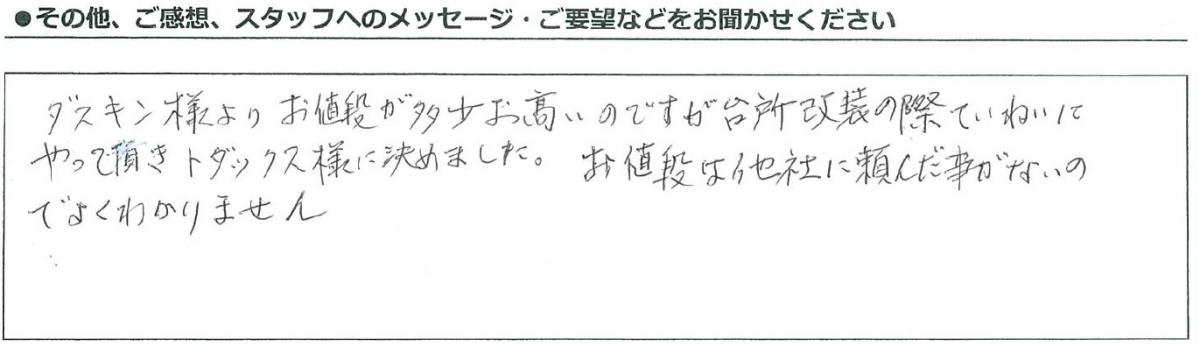 ●その他、ご感想、スタッフへのメッセージ・ご要望などをお聞かせください
ダスキン様より お値段が多少お高いのですが台所改装の際ていねいに
やって頂きトダックス様に決めました。 お値段は他社に頼んだ事がないの
でよくわかりません